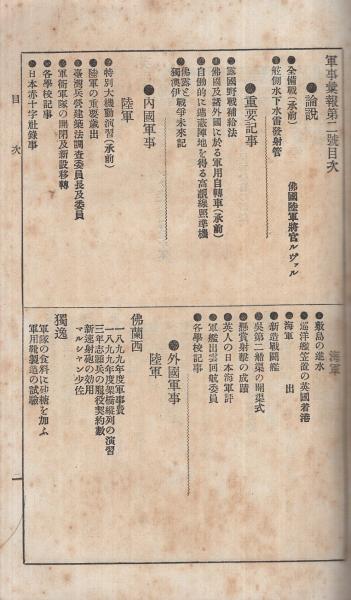 軍事彙報第二號目次
論說
全備戰(承前) 佛國陸軍將官ルヴァル
舷側水下水雷發射管
重要記事
露國野戰補給法
佛國及諸外國に於る軍用自轉車(承前)
自働的に遮蔽陣地を得る高眼線照準機
佛露と戰爭未來記
獨澳伊
內國軍事
陸軍
特別大機動演習(承前)
陸軍の重要歲出
臺灣兵營建築法調査委員長及委員
軍衙軍隊の開閉及新設移轉
各學校記事
日本赤十字社錄事
目次
海軍
敷島の進水
巡洋艦笠置の英國着港
海軍 出
新造戰鬪艦
吳第二船渠の開渠式
懸賞射擊の成蹟
英人の日本海軍評
軍艦出雲回航委員
各學校記事
外國軍事
陸軍
佛蘭西
一八九九年度軍事費
一八九九年度架橋縱列の演習
三年志願兵の服役契約數
新速射砲の効用
マルシャン少佐
獨逸
軍隊の食料に砂糖を加ふ
軍用靴製造の試驗